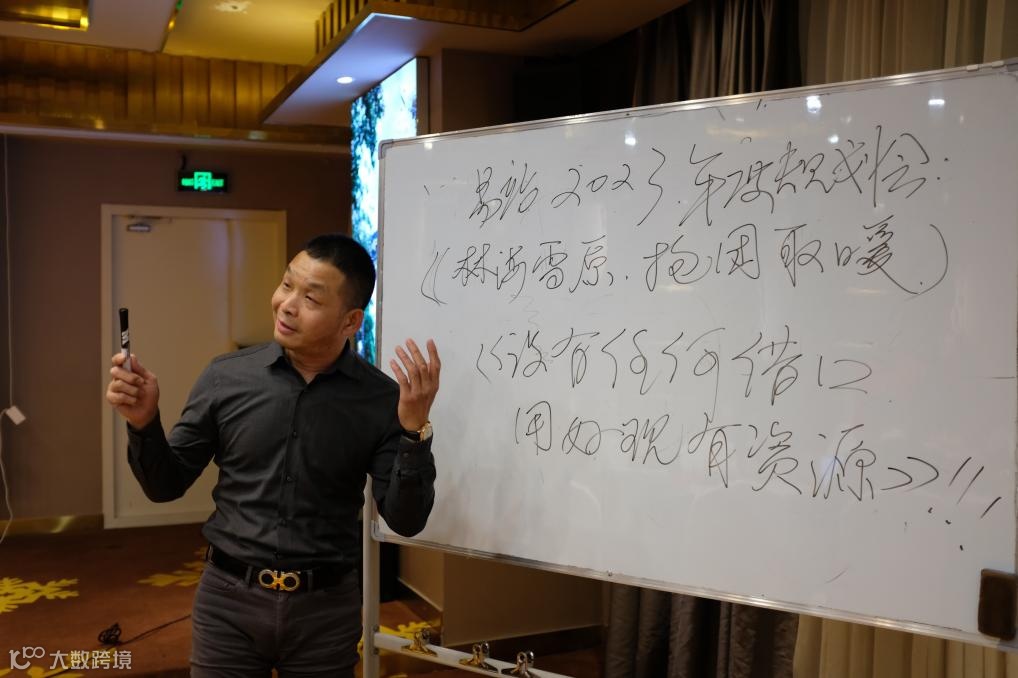 易站2023年度规划会:
(《林海雪原.抱团取暖)
《没有任何借口
用好现有资源》!!!
大数跨境